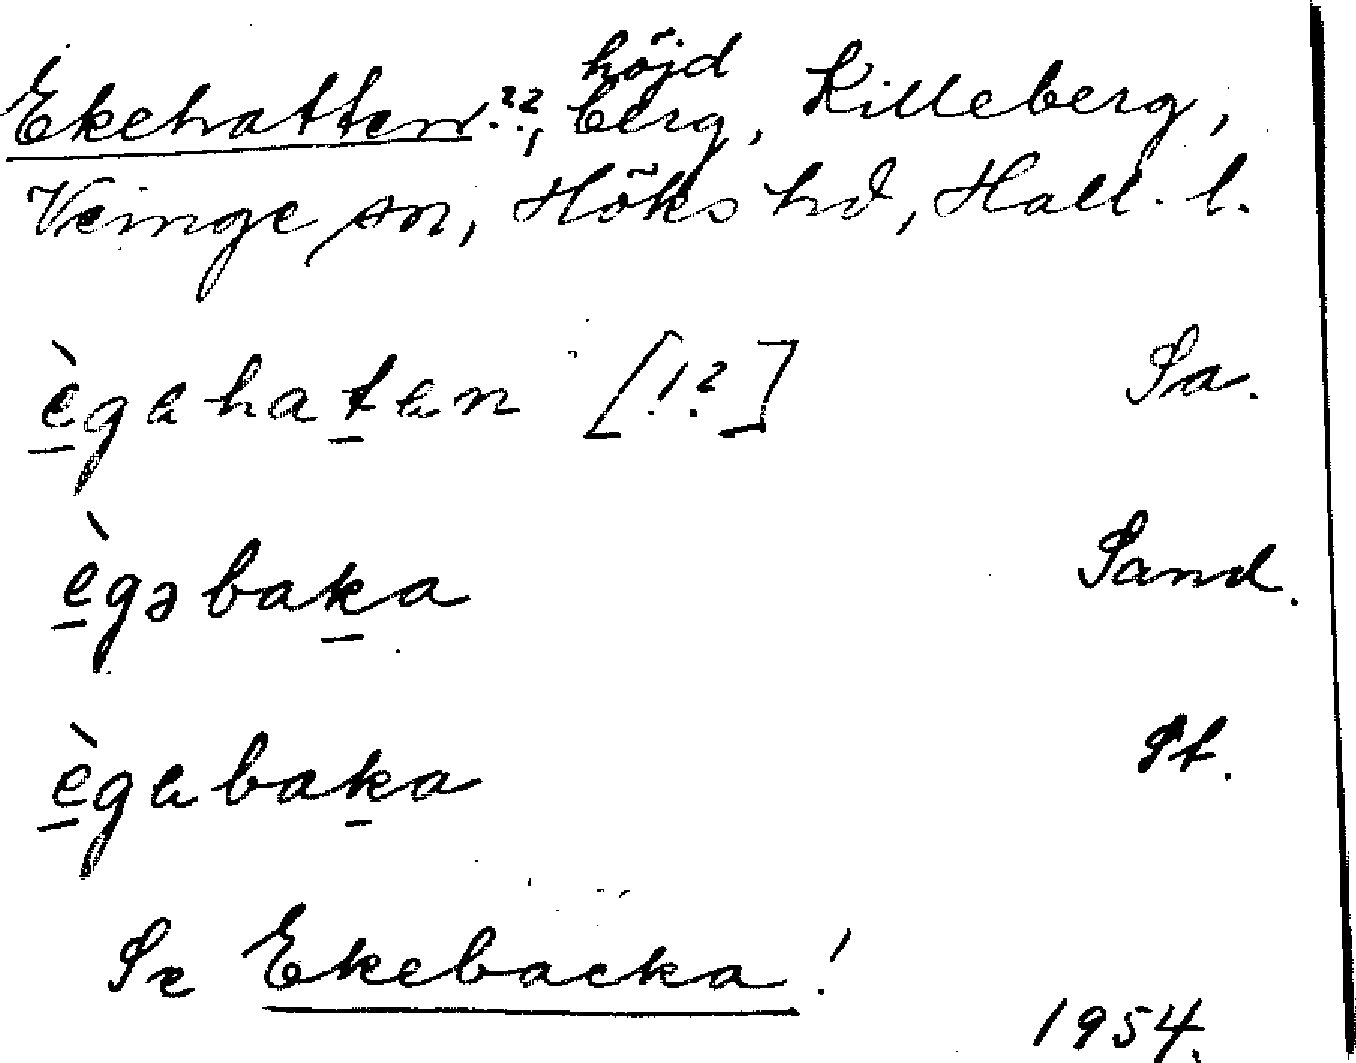 Ekehatten??, höjd berg, Killeberg,
Veinge sn, Höks hd, Hall. l.
ègəhatən [!?] Sa.
ègəbaka Sand.
ègəbaka St.
Se Ekebacka!
1954.